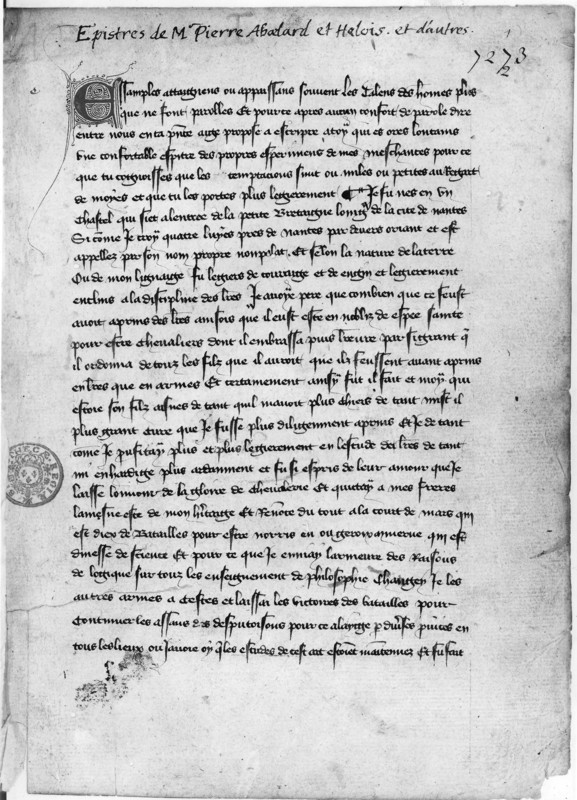 Epistres de Mᵉ Pierre Abalard et Helois. et d'autres.
7273
2
Essamples attaignens ou appaissans souvent les talens des homes plus
que ne font parolles Et pour ce apres aucun confort de parole dire
entre nous en ta pñte ay ge propose a escripre a toy qui es ores lointains
une confortable espitre des propres esperimens de mes meschances pour ce
que tu cognoisses que les temptacions sunt ou nules ou petites au Regart
de moyes et que tu les portes plus legierement Je fu nes en un
chastel qui siet a lentree de la petite Bretaigne loing de la cite de nantes
Si cõme Je croy quatre luyes pres de nantes par devers oriant et est
appellez par son nom propre Et selon la nature de la terre
Ou de mon lignaige fu legiers de couraige et de engin et legierement
enclins a la discipline des lr̃es Je avoye pere que combien que ce feust
avoit aprins des lr̃es ainsois que il eust este en nobliz de espee sainte
pour estre chevaliers dont il embrassa puis lettreure par si grant
il ordonna de touz les filz que il avroit que ilz feussent avant aprins
en lr̃es que en armes Et certainement ainsy fut il fait et moy qui
estoie son filz aisnes de tant quil mavoit plus chiers de tant mist il
plus grant cure que Je fusse plus diligenment aprins Et Je de tant
cõme Je pufitay plus et plus legierement en lestude des lr̃es de tant
mi enhardige plus ardanment et fu si espris de leur amour que Je
laisse lonnour de la gloire de chevalerie Et quittay a mes freres
lainsnesce de mon hr̃itaige Et Renoce du tout a la court de mars qui
est diex de Batailles pour estre norris en ou geron minerve qui est
dinesse de science Et pour ce que Je enmay larmeure des Raisons
de logique sur touz les enseignement de philosophie changey Je les
autres armes a cestes et laissai les victoires des batailles pour
continuer les assaus des desputoisons pour ce alai ge p diuˢses puinces en
tous les lieux ou Javoie oy que les estudes de cest art estoient maintenuz Et fu fait